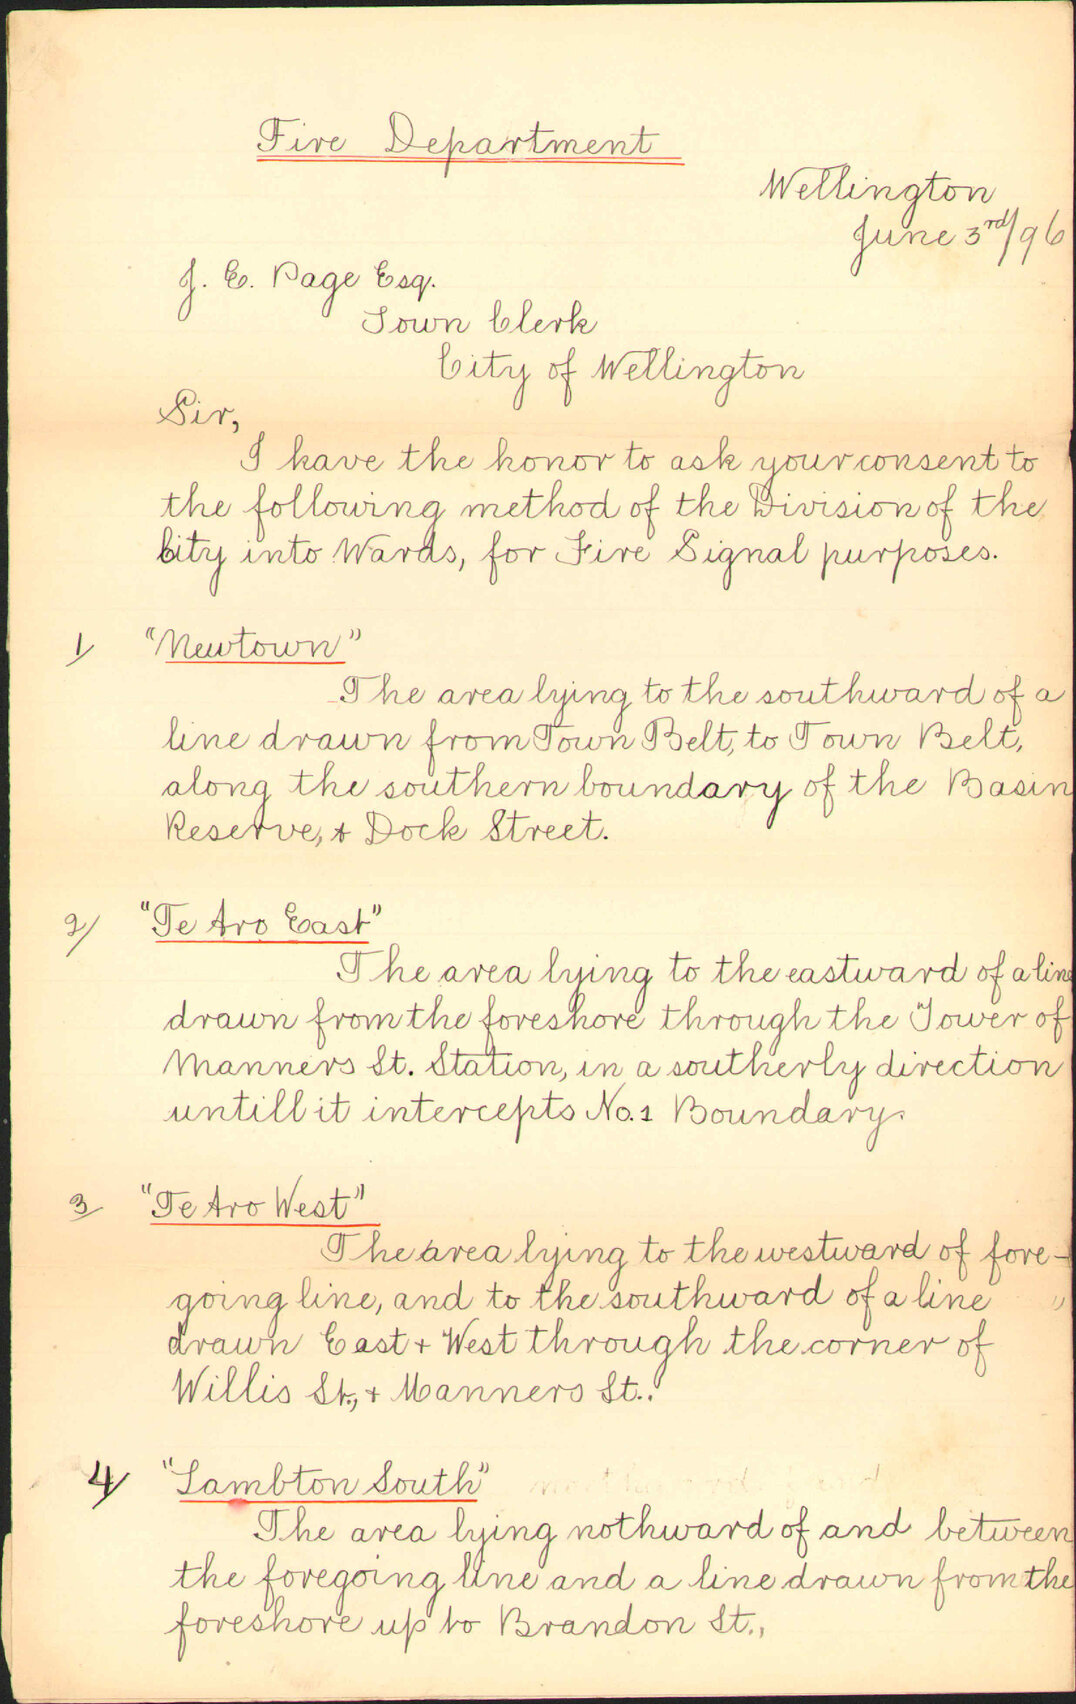 Fire Department
Wellington
June 3rd/96
J. E. Page Esq.
Town Clerk
City of Wellington
Sir,
I have the honor to ask your consent to
the following method of the Division of the
City into Wards, for Fire Signal purposes.
1/ "Newtown"
The area lying to the southward of a
line drawn from Town Belt, to Town Belt,
along the southern boundary of the Basin
Reserve, & Dock Street.
2/ "Te Aro East"
The area lying to the eastward of a line
drawn from the foreshore through the Tower of
Manners St. Station, in a southerly direction
untill it intercepts No. 1 Boundary.
3/ "Te Aro West"
The area lying to the westward of fore-
going line, and to the southward of a line
drawn East & West through the corner of
Willis St., & Manners St..
4/ "Lambton South"
The area lying nothward of and between
the foregoing line and a line drawn from the
foreshore up to Brandon St.,